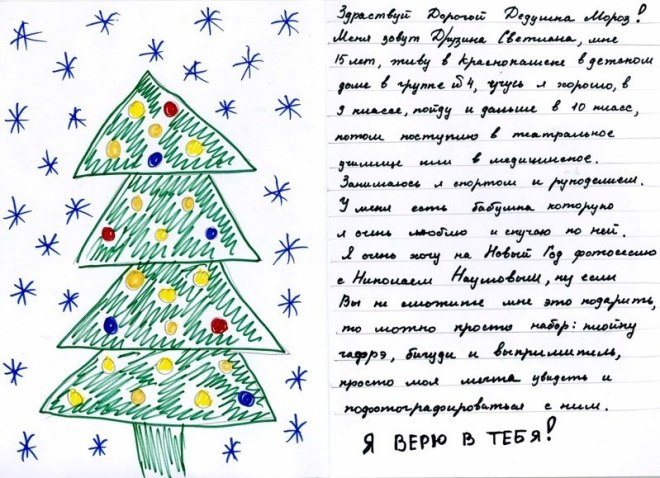 Здраствуй Дорогой Дедушка Мороз!
Меня зовут Друзина Светлана, мне
15 лет, живу в Краснокаменске в детском
доме в группе №4, учусь я хорошо, в
9 классе, пойду и дальше в 10 класс,
потом поступлю в театральное
училище или в медицинское.
Занимаюсь я спортом и рукоделием.
У меня есть бабушка которую
я очень люблю и скучаю по ней.
Я очень хочу на Новый Год фотосессию
с Николаем Наумовым, ну если
Вы не сможите мне это подарить,
то можно просто набор: плойку
гафрэ, бигуди и выпримитель,
просто моя мечта увидеть и
пофотографироваться с ним.
Я ВЕРЮ В ТЕБЯ!